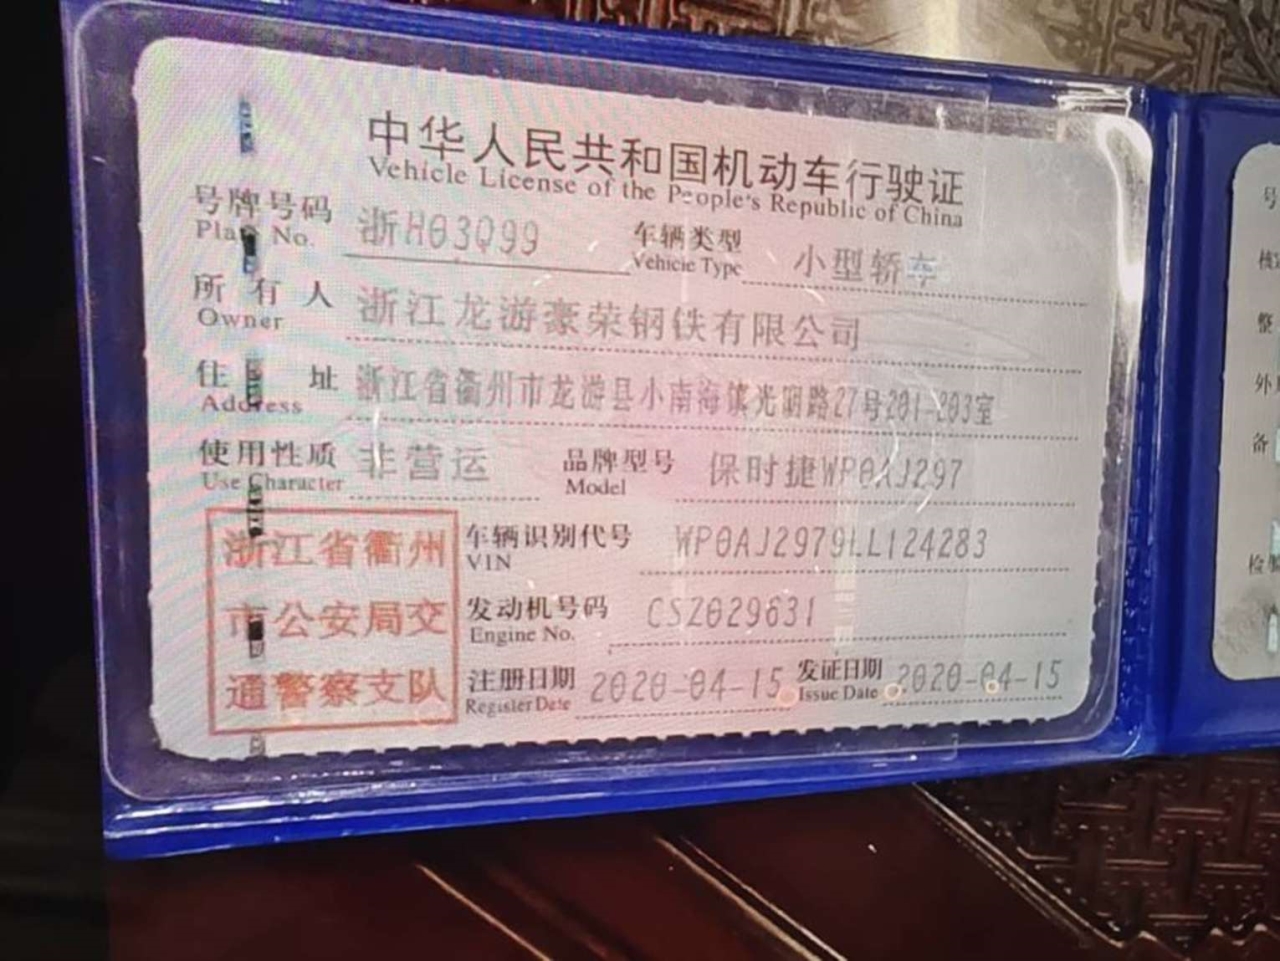 中华人民共和国机动车行驶证
Vehicle License of the People's Republic of China
号牌号码 浙H03Q99 车辆类型 小型轿车
Plate No. Vehicle Type
所有人 浙江龙游豪荣钢铁有限公司
Owner
住址 浙江省衢州市龙游县小南海镇光明路27号201-203室
Address
使用性质 非营运 品牌型号 保时捷WP0AJ297
Use Character Model
浙江省衢州
市公安局交
通警察支队
车辆识别代号 WP0AJ2979LL124283
VIN
发动机号码 CSZ029631
Engine No.
注册日期 2020-04-15 发证日期 2020-04-15
Register Date Issue Date
号
核定
整
外
备
检验